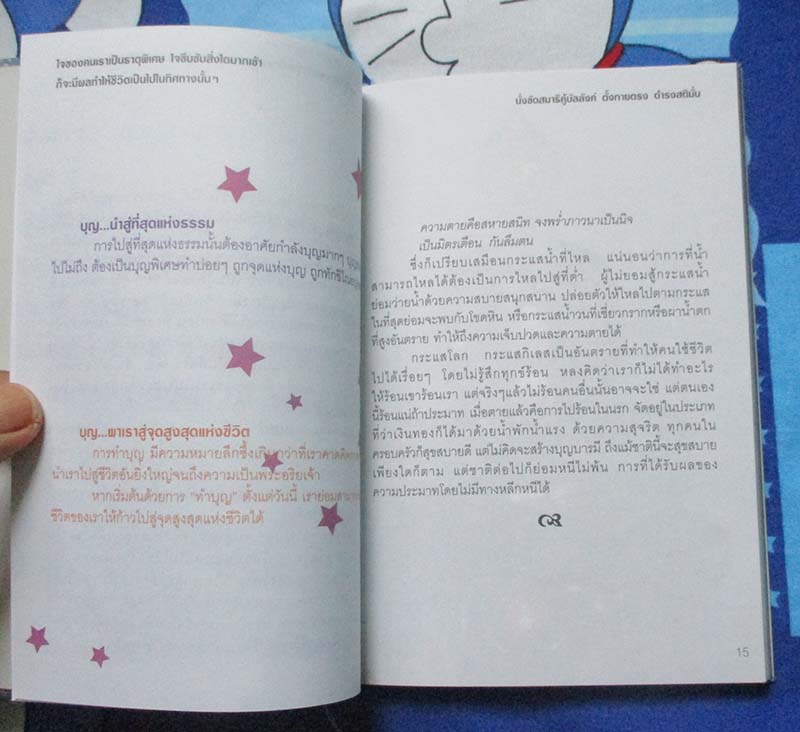 ใจของคนเราเป็นธาตุพิเศษ ใจซึมซับสิ่งใดมากเข้า
ก็จะมีผลทำให้ชีวิตเป็นไปในทิศทางนั้นๆ
บุญ...นำสู่ที่สุดแห่งธรรม
การไปสู่ที่สุดแห่งธรรมนั้นต้องอาศัยกำลังบุญมากๆ
ไปไม่ถึง ต้องเป็นบุญพิเศษทำบ่อยๆ ถูกจุดแห่งบุญ
บุญ...พาเราสู่จุดสูงสุดแห่งชีวิต
การทำบุญ มีความหมายลึกซึ้งเกินกว่าที่เราคาดคิด
นำเราไปสู่ชีวิตอันยิ่งใหญ่จนถึงความเป็นพระอริยเจ้า
หากเริ่มต้นด้วยการ "ทำบุญ" ตั้งแต่วันนี้ เราย่อม
ชีวิตของเราให้ก้าวไปสู่จุดสูงสุดแห่งชีวิตได้
นั่งขัดสมาธิคู้บัลลังก์ ตั้งกายตรง ดำรงสติมั่น
ความตายคือสหายสนิท จงพร่ำภาวนาเป็นนิจ
เป็นมิตรเตือน กันลืมตน
ซึ่งก็เปรียบเสมือนกระแสน้ำที่ไหล แน่นอนว่าการที่น้ำ
สามารถไหลได้ต้องเป็นการไหลไปสู่ที่ต่ำ ผู้ไม่ยอมสู้กระแสน้ำ
ย่อมว่ายน้ำด้วยความสบายสนุกสนาน ปล่อยตัวให้ไหลไปตามกระแส
ในที่สุดย่อมจะพบกับโขดหิน หรือกระแสน้ำวนที่เชี่ยวกรากหรือผาน้ำตก
ที่สูงอันตราย ทำให้ถึงความเจ็บปวดและความตายได้
กระแสโลก กระแสกิเลสเป็นอันตรายที่ทำให้คนใช้ชีวิต
ไปได้เรื่อยๆ โดยไม่รู้สึกทุกข์ร้อน หลงคิดว่าเราก็ไม่ได้ทำอะไร
ให้ร้อนเขาร้อนเรา แต่จริงๆแล้วไม่ร้อนคนอื่นนั้นอาจจะใช่ แต่ตนเอง
นี้ร้อนแน่ถ้าประมาท เมื่อตายแล้วคือการไปร้อนในนรก จัดอยู่ในประเภท
ที่ว่าเงินทองก็ได้มาด้วยน้ำพักน้ำแรง ด้วยความสุจริต ทุกคนใน
ครอบครัวก็สุขสบายดี แต่ไม่คิดจะสร้างบุญบารมี ถึงแม้ชาตินี้จะสุขสบาย
เพียงใดก็ตาม แต่ชาติต่อไปก็ย่อมหนีไม่พ้น การที่ได้รับผลของ
ความประมาทโดยไม่มีทางหลีกหนีได้
15